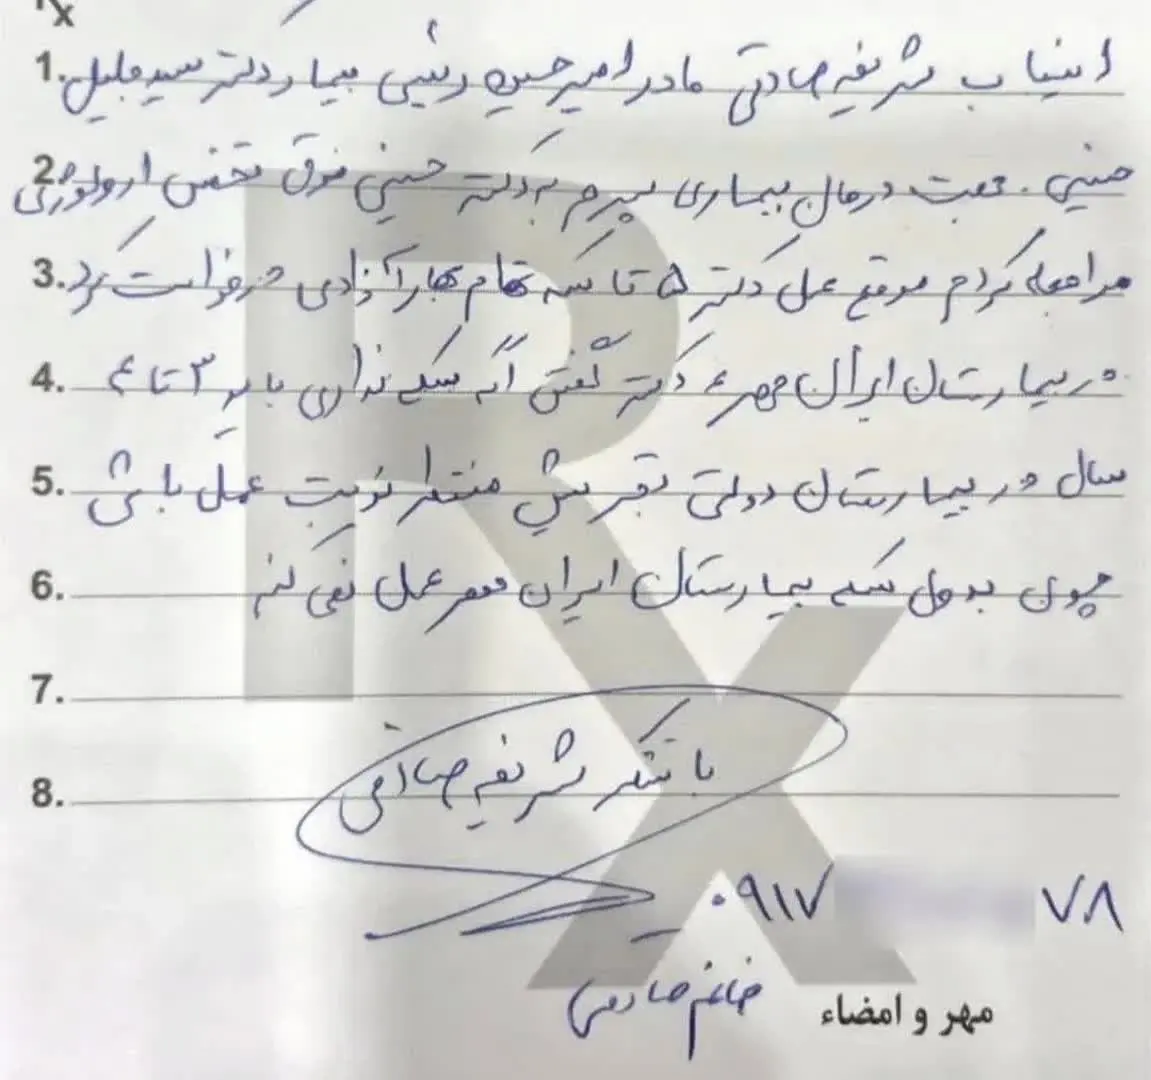 Rx
1. اینجانب شریفه صادقی مادر امیرحسین رئیسی بیمار دکتر سید جلیل
2. حسینی. جهت درمان بیماری پسرم به دکتر حسینی فوق تخصص ارولوژی
3. مراجعه کردم موقع عمل دکتر ۵ تا سکه تمام بهار آزادی درخواست کرد.
4. در بیمارستان ایران مهر، دکتر گفتن اگه سکه نداری باید ۳ تا ۴
5. سال در بیمارستان دولتی تجریش منتظر نوبت عمل باشی
6. چون بدون سکه بیمارستان ایران مهر عمل نمی کنم
7.
8. با تشکر شریفه صادقی
۰۹۱۷ ۷۸
خانم صادقی
مهر و امضاء